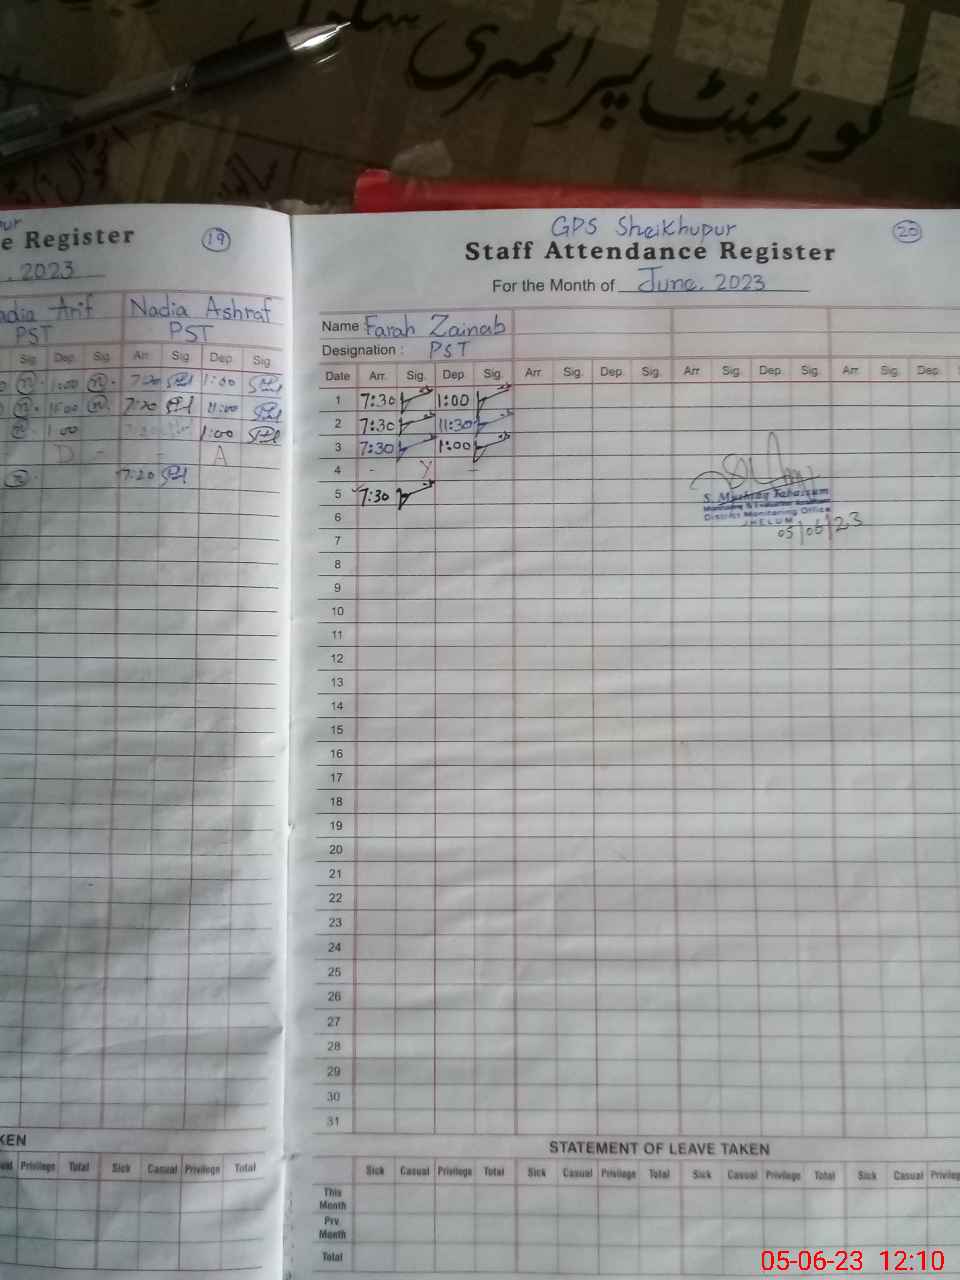 گورنمنٹ پرائمری
e Register
19
. 2023
adia Arif Nadia Ashraf
PST PST
Sig. Dep. Sig. Arr. Sig. Dep. Sig.
1:00 7:20 1:00
11:00 7:20 11:00
1:00 1:00
D - - A
7:20
KEN
ual Privilege Total Sick Casual Privilege Total
GPS Sheikhupur
20
Staff Attendance Register
For the Month of June. 2023
Name Farah Zainab
Designation : PST
Date Arr. Sig. Dep. Sig. Arr. Sig. Dep. Sig. Arr. Sig. Dep. Sig. Arr. Sig. Dep.
1 7:30 1:00
2 7:30 11:30
3 7:30 1:00
4 - Y -
5 7:30
S. Mushtaq Tabassum
Monitoring & Evaluation Assistant
District Monitoring Office
JHELUM
05/06/23
6
7
8
9
10
11
12
13
14
15
16
17
18
19
20
21
22
23
24
25
26
27
28
29
30
31
STATEMENT OF LEAVE TAKEN
Sick Casual Privilege Total Sick Casual Privilege Total Sick Casual Privilege Total Sick Casual Privileg
This Month
Prv. Month
Total
05-06-23 12:10